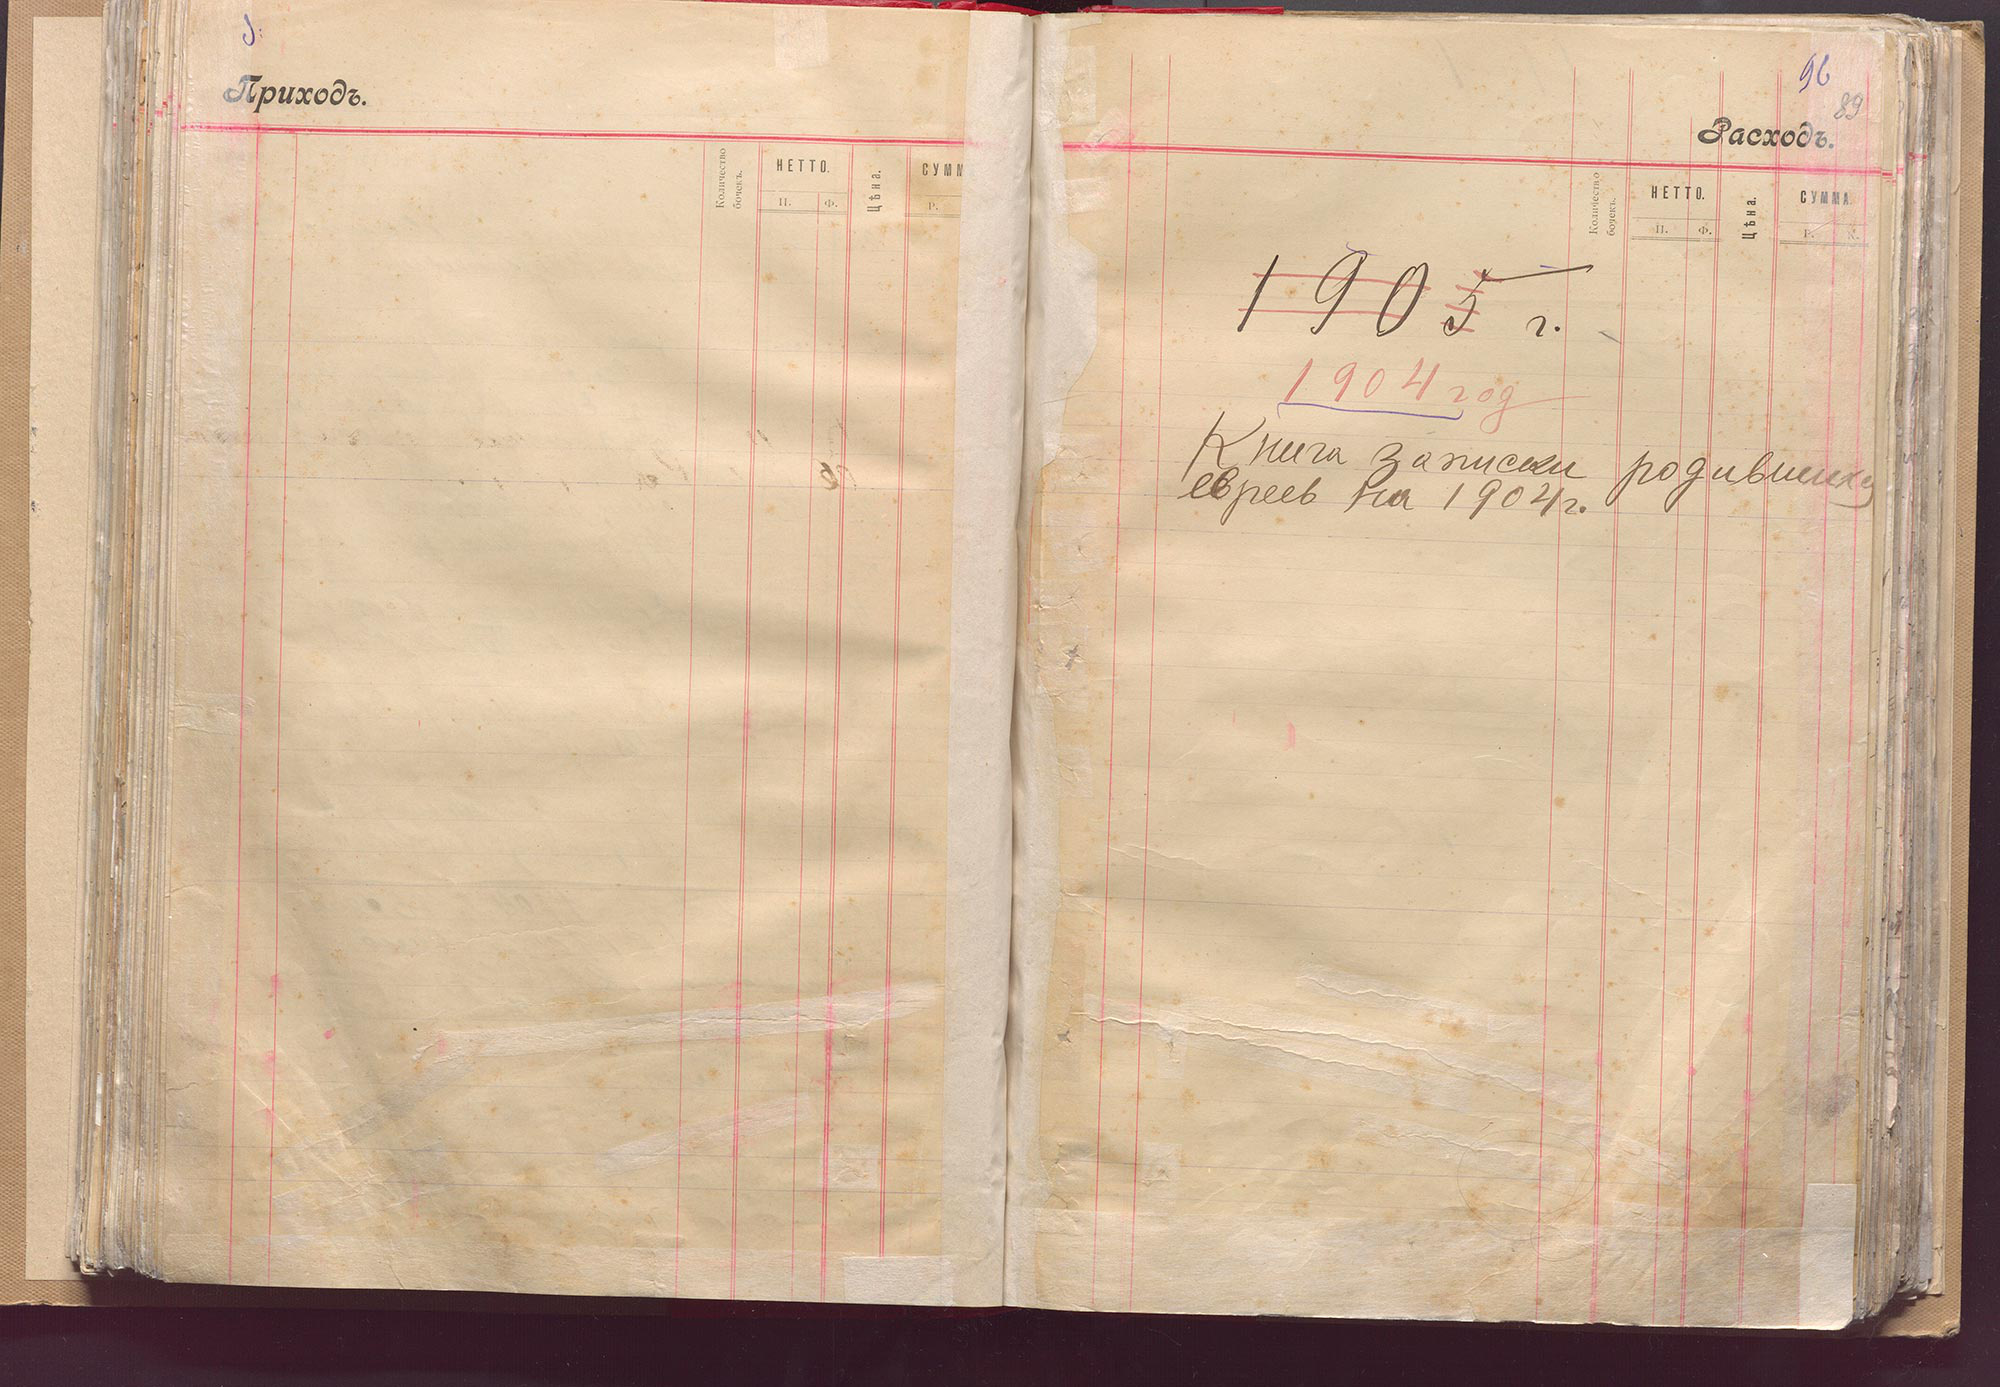 Приходъ.
Количество бочекъ.
НЕТТО.
П. Ф.
Цѣна.
СУММ
Р.
96
89
Расходъ.
Количество бочекъ.
НЕТТО.
П. Ф.
Цѣна.
СУММА.
Р. К.
1905 г.
1904 год
Книга записки родившихся
евреев на 1904 г.